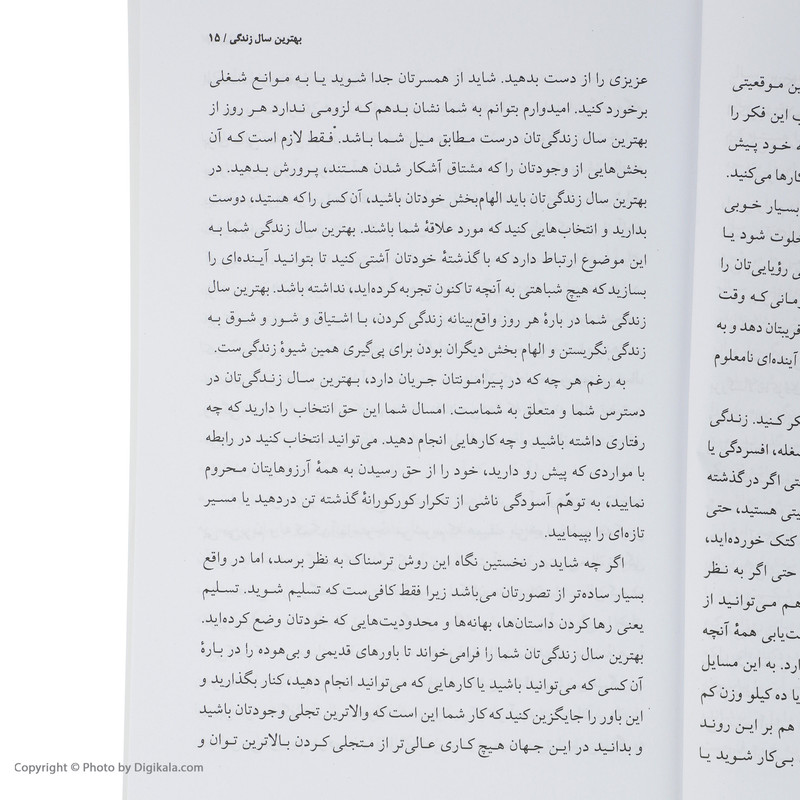 بهترین سال زندگی / ۱۵
عزیزی را از دست بدهید. شاید از همسرتان جدا شوید یا به موانع شغلی
برخورد کنید. امیدوارم بتوانم به شما نشان بدهم که لزومی ندارد هر روز از
بهترین سال زندگی‌تان درست مطابق میل شما باشد. فقط لازم است که آن
بخش‌هایی از وجودتان را که مشتاق آشکار شدن هستند، پرورش بدهید. در
بهترین سال زندگی‌تان باید الهام‌بخش خودتان باشید، آن کسی را که هستید، دوست
بدارید و انتخاب‌هایی کنید که مورد علاقهٔ شما باشند. بهترین سال زندگی شما به
این موضوع ارتباط دارد که با گذشتهٔ خودتان آشتی کنید تا بتوانید آینده‌ای را
بسازید که هیچ شباهتی به آنچه تاکنون تجربه کرده‌اید، نداشته باشد. بهترین سال
زندگی شما در بارهٔ هر روز واقع‌بینانه زندگی کردن، با اشتیاق و شور و شوق به
زندگی نگریستن و الهام بخش دیگران بودن برای پی‌گیری همین شیوهٔ زندگی‌ست.
به رغم هر چه که در پیرامونتان جریان دارد، بهترین سال زندگی‌تان در
دسترس شما و متعلق به شماست. امسال شما این حق انتخاب را دارید که چه
رفتاری داشته باشید و چه کارهایی انجام دهید. می‌توانید انتخاب کنید در رابطه
با مواردی که پیش رو دارید، خود را از حق رسیدن به همهٔ آرزوهایتان محروم
نمایید، به توهّم آسودگی ناشی از تکرار کورکورانهٔ گذشته تن دردهید یا مسیر
تازه‌ای را بپیمایید.
اگر چه شاید در نخستین نگاه این روش ترسناک به نظر برسد، اما در واقع
بسیار ساده‌تر از تصورتان می‌باشد زیرا فقط کافی‌ست که تسلیم شوید. تسلیم
یعنی رها کردن داستان‌ها، بهانه‌ها و محدودیت‌هایی که خودتان وضع کرده‌اید.
بهترین سال زندگی‌تان شما را فرامی‌خواند تا باورهای قدیمی و بی‌هوده را در بارهٔ
آن کسی که می‌توانید باشید یا کارهایی که می‌توانید انجام دهید، کنار بگذارید و
این باور را جایگزین کنید که کار شما این است که والاترین تجلی وجودتان باشید
و بدانید در این جهان هیچ کاری عالی‌تر از متجلی کردن بالاترین توان و
موقعیتی
این فکر را
خود پیش
کارها می‌کنید.
بسیار خوبی
خلوت شود یا
رؤیایی‌تان را
که وقت
فریبتان دهد و به
آینده‌ای نامعلوم
کنید. زندگی
افسردگی یا
اگر در گذشته
هستید، حتی
کتک خورده‌اید،
حتی اگر به نظر
هم می‌توانید از
همهٔ آنچه
به این مسایل
یا ده کیلو وزن کم
هم بر این روند
بی‌کار شوید یا
Copyright © Photo by Digikala.com